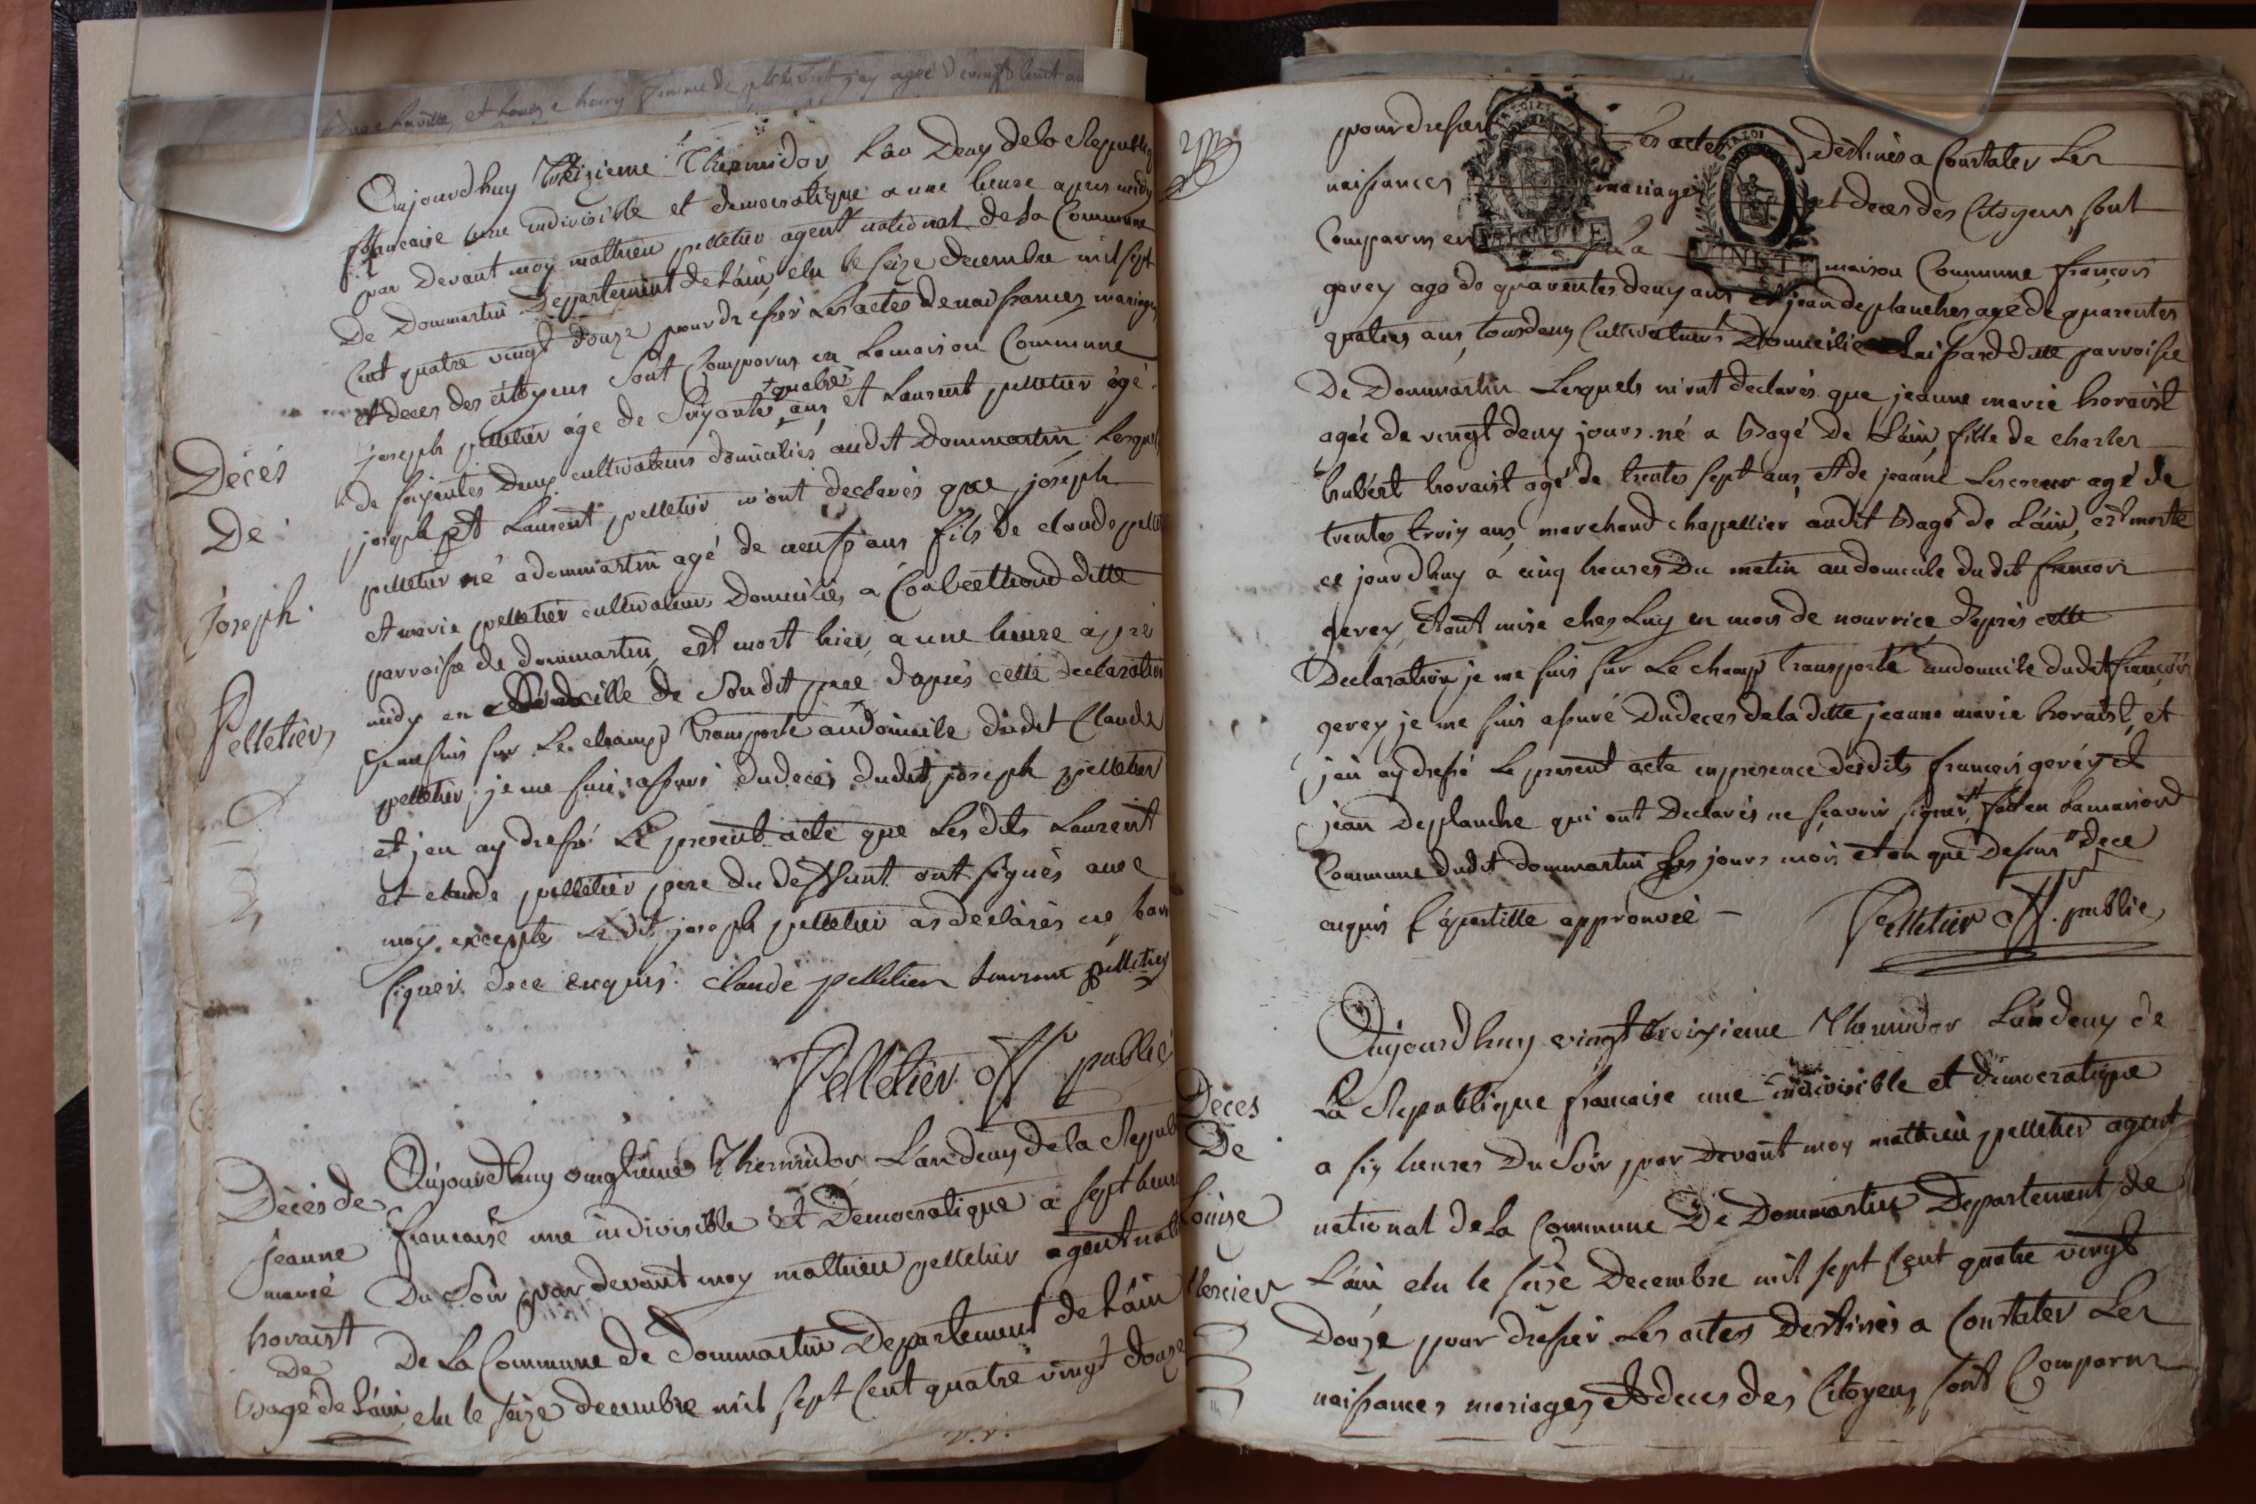 Bagé la ville, et Louise henry femme de agée de vingt huit an
Aujourdhuy treizieme Thermidor Lan Deux de la Republiq
francaise une indivisible et democratique a une heure apres midy
par Devant moy mathieu pelletier agent national de la Commune
De Dommartin Departement de Lain elu le seize decembre mil sept
Cent quatre vingt douze pour dresser Les actes de naissances mariages
et deces des citoyens Sont Comparus en La maison Commune
joseph pelletier agé de Soixantes quatres ans et Laurent pelletier agé
de soixantes Deux cultivateurs domicilies audit Dommartin Lesquels
joseph et Laurent pelletier m'ont declarés que joseph
pelletier né a dommartin agé de neufs ans fils de claude pelle
et marie pelletier cultivateurs Domicilies a ditte
parroisse de dommartin, est mort hier a une heure apre
midy en de Son dit pere d'apres cette declaration
je me suis sur Le champs transporté au domicile dudit Claude
pelletier, je me suis assuré du deces dudit joseph pelletier
et jen ay dressé Le present acte que Les dits Laurent
et claude pelletier pere du deffunt ont signés avec
moy excepté Le dit joseph pelletier as declarés ne
signer de ce enquis. claude pelletier Laurent pelletier
Pelletier off public
Décés
De
joseph
Pelletier
Décés de
jeanne
marie
horaist
De
Bagé de Lain
Aujourdhuy vingtieme Thermidor Lan deux de la Repub
francaise une indivisible et Democratique a sept heure
Du Soir par devant moy mathieu pelletier agent nati
De La Commune de Dommartin Departement de Lain
elu le seize decembre mil sept Cent quatre vingt douze
pour dresser Les actes destinés a Constater Les
naissances mariages et deces des Citoyens sont
Comparus en La maison Commune francois
gerey agé de quarentes deux ans et jean deplanches agé de quarentes
quatres ans, tous deux Cultivateurs Domiciliés ditte parroisse
De Dommartin Lesquels m'ont declarés que jeanne marie horaist
agée de vingt deux jours né a Bagé De Lain, fille de charles
hubert horaist agé de trentes sept ans, et de jeanne agé de
trentes trois ans, marchand chapellier audit Bagé de Lain, est morte
ce jourdhuy a cinq heures Du matin au domicile du dit francois
gerey, etant mise chez Luy en mois de nourrice d'apres cette
Declaration, je me suis sur Le champ transporté au domicile du dit francois
gerey je me suis assuré Du deces de la ditte jeanne marie horaist, et
jen ay dressé Le present acte en presence desdits francois gerey et
jean Deplanche qui ont Declarés ne sçavoir signer, fait en La maison
Commune dudit dommartin Les jours mois et an que Dessus de ce
enquis L'apostille approuvée —
Pelletier off. public
Déces
De
Louise
Mercier
Aujourdhuy vingt troisieme Thermidor Lan deux de
La Republique francaise une indivisible et democratique
a six heures Du Soir par Devant moy mathieu pelletier agent
national de La Commune De Dommartin Departement de
Lain elu le seize Decembre mil sept Cent quatre vingt
Douze pour dresser Les actes Destinés a Constater Les
naissances mariages, et deces des Citoyens sont Comparus